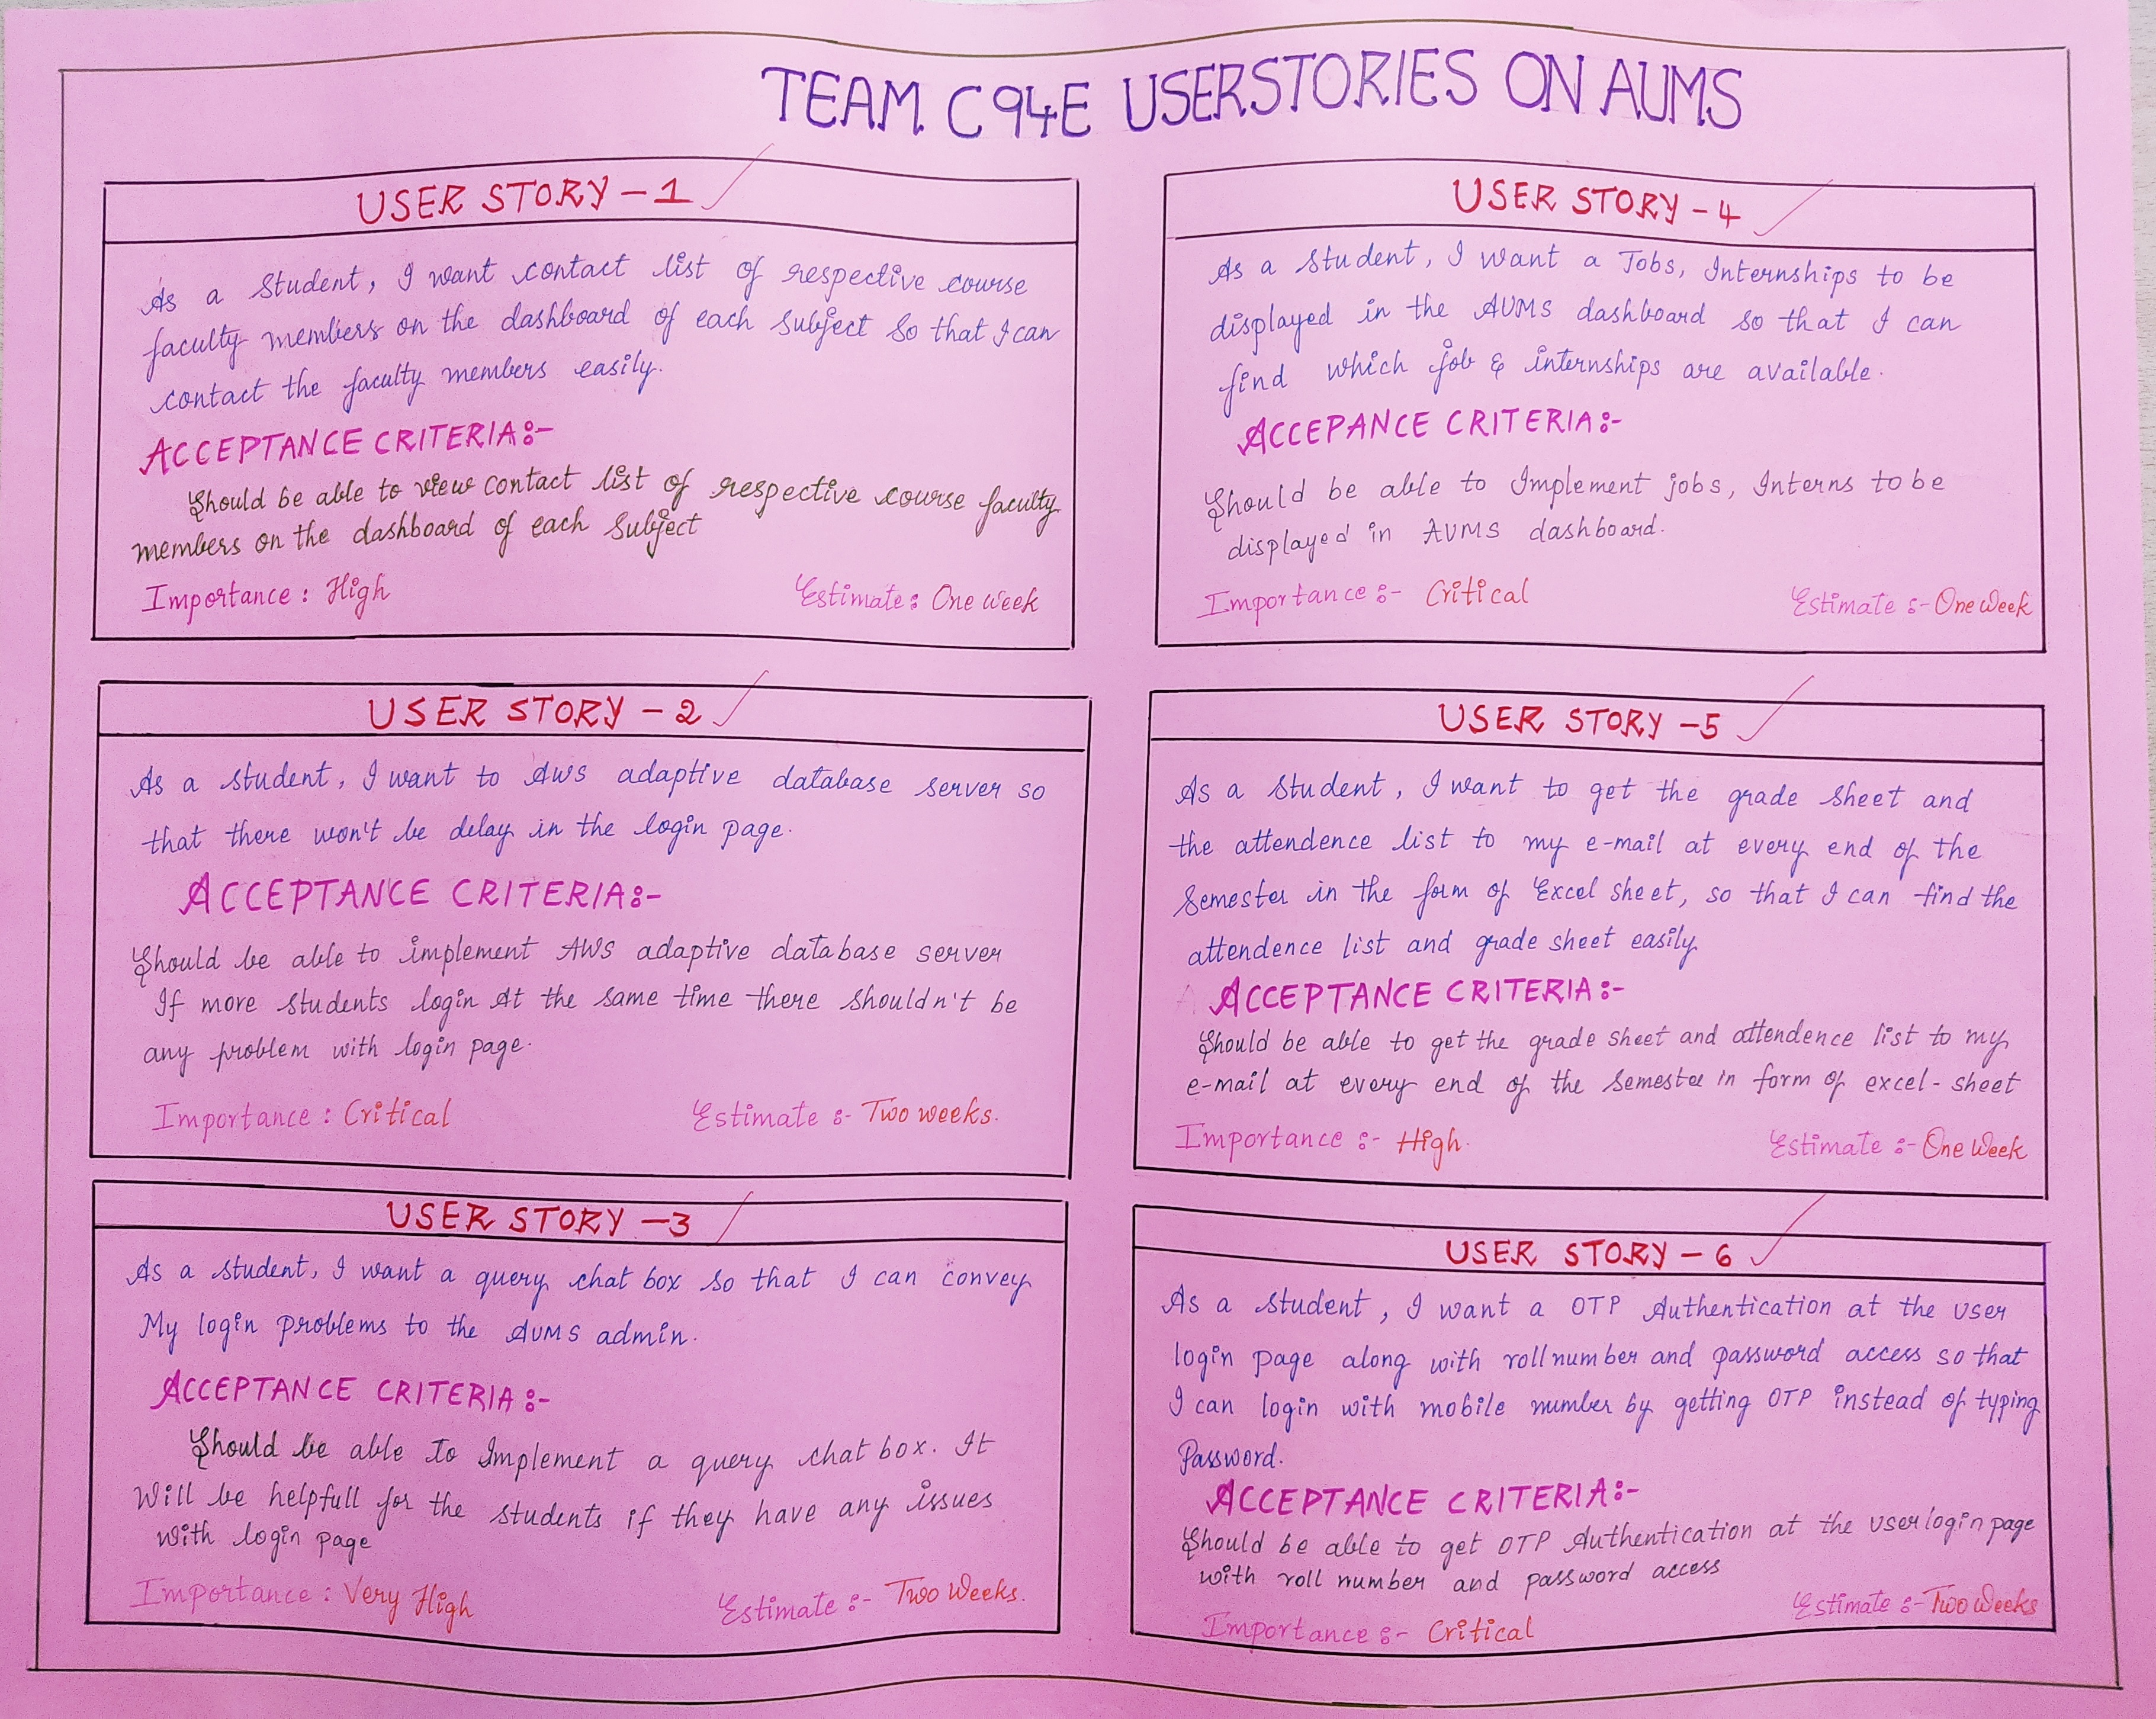 TEAM C94E USERSTORIES ON AUMS
USER STORY - 1
As a Student, I want contact list of respective course
faculty members on the dashboard of each Subject So that I can
contact the faculty members easily.
ACCEPTANCE CRITERIA:-
Should be able to view contact list of respective course faculty
members on the dashboard of each Subject
Importance : High Estimate : One week
USER STORY - 2
As a student, I want to AWS adaptive database server so
that there won't be delay in the login page.
ACCEPTANCE CRITERIA:-
Should be able to implement AWS adaptive database server
If more students login At the same time there shouldn't be
any problem with login page.
Importance : Critical Estimate :- Two weeks.
USER STORY -3
As a student, I want a query chat box so that I can convey
My login problems to the AUMS admin.
ACCEPTANCE CRITERIA :-
Should be able To Implement a query chat box. It
Will be helpfull for the students if they have any issues
With login page
Importance : Very High Estimate :- Two Weeks.
USER STORY - 4
As a student, I want a Jobs, Internships to be
displayed in the AUMS dashboard so that I can
find which job & internships are available.
ACCEPANCE CRITERIA:-
Should be able to Implement jobs, Interns to be
displayed in AUMS dashboard.
Importance :- Critical Estimate :- One Week
USER STORY -5
As a student, I want to get the grade sheet and
the attendence list to my e-mail at every end of the
Semester in the form of Excel sheet, so that I can find the
attendence list and grade sheet easily
ACCEPTANCE CRITERIA :-
Should be able to get the grade sheet and attendence list to my
e-mail at every end of the semester in form of excel-sheet
Importance :- High. Estimate :- One Week
USER STORY - 6
As a student, I want a OTP Authentication at the user
login page along with roll number and password access so that
I can login with mobile number by getting OTP instead of typing
Password.
ACCEPTANCE CRITERIA:-
Should be able to get OTP Authentication at the user login page
with roll number and password access
Estimate :- Two Weeks
Importance :- Critical